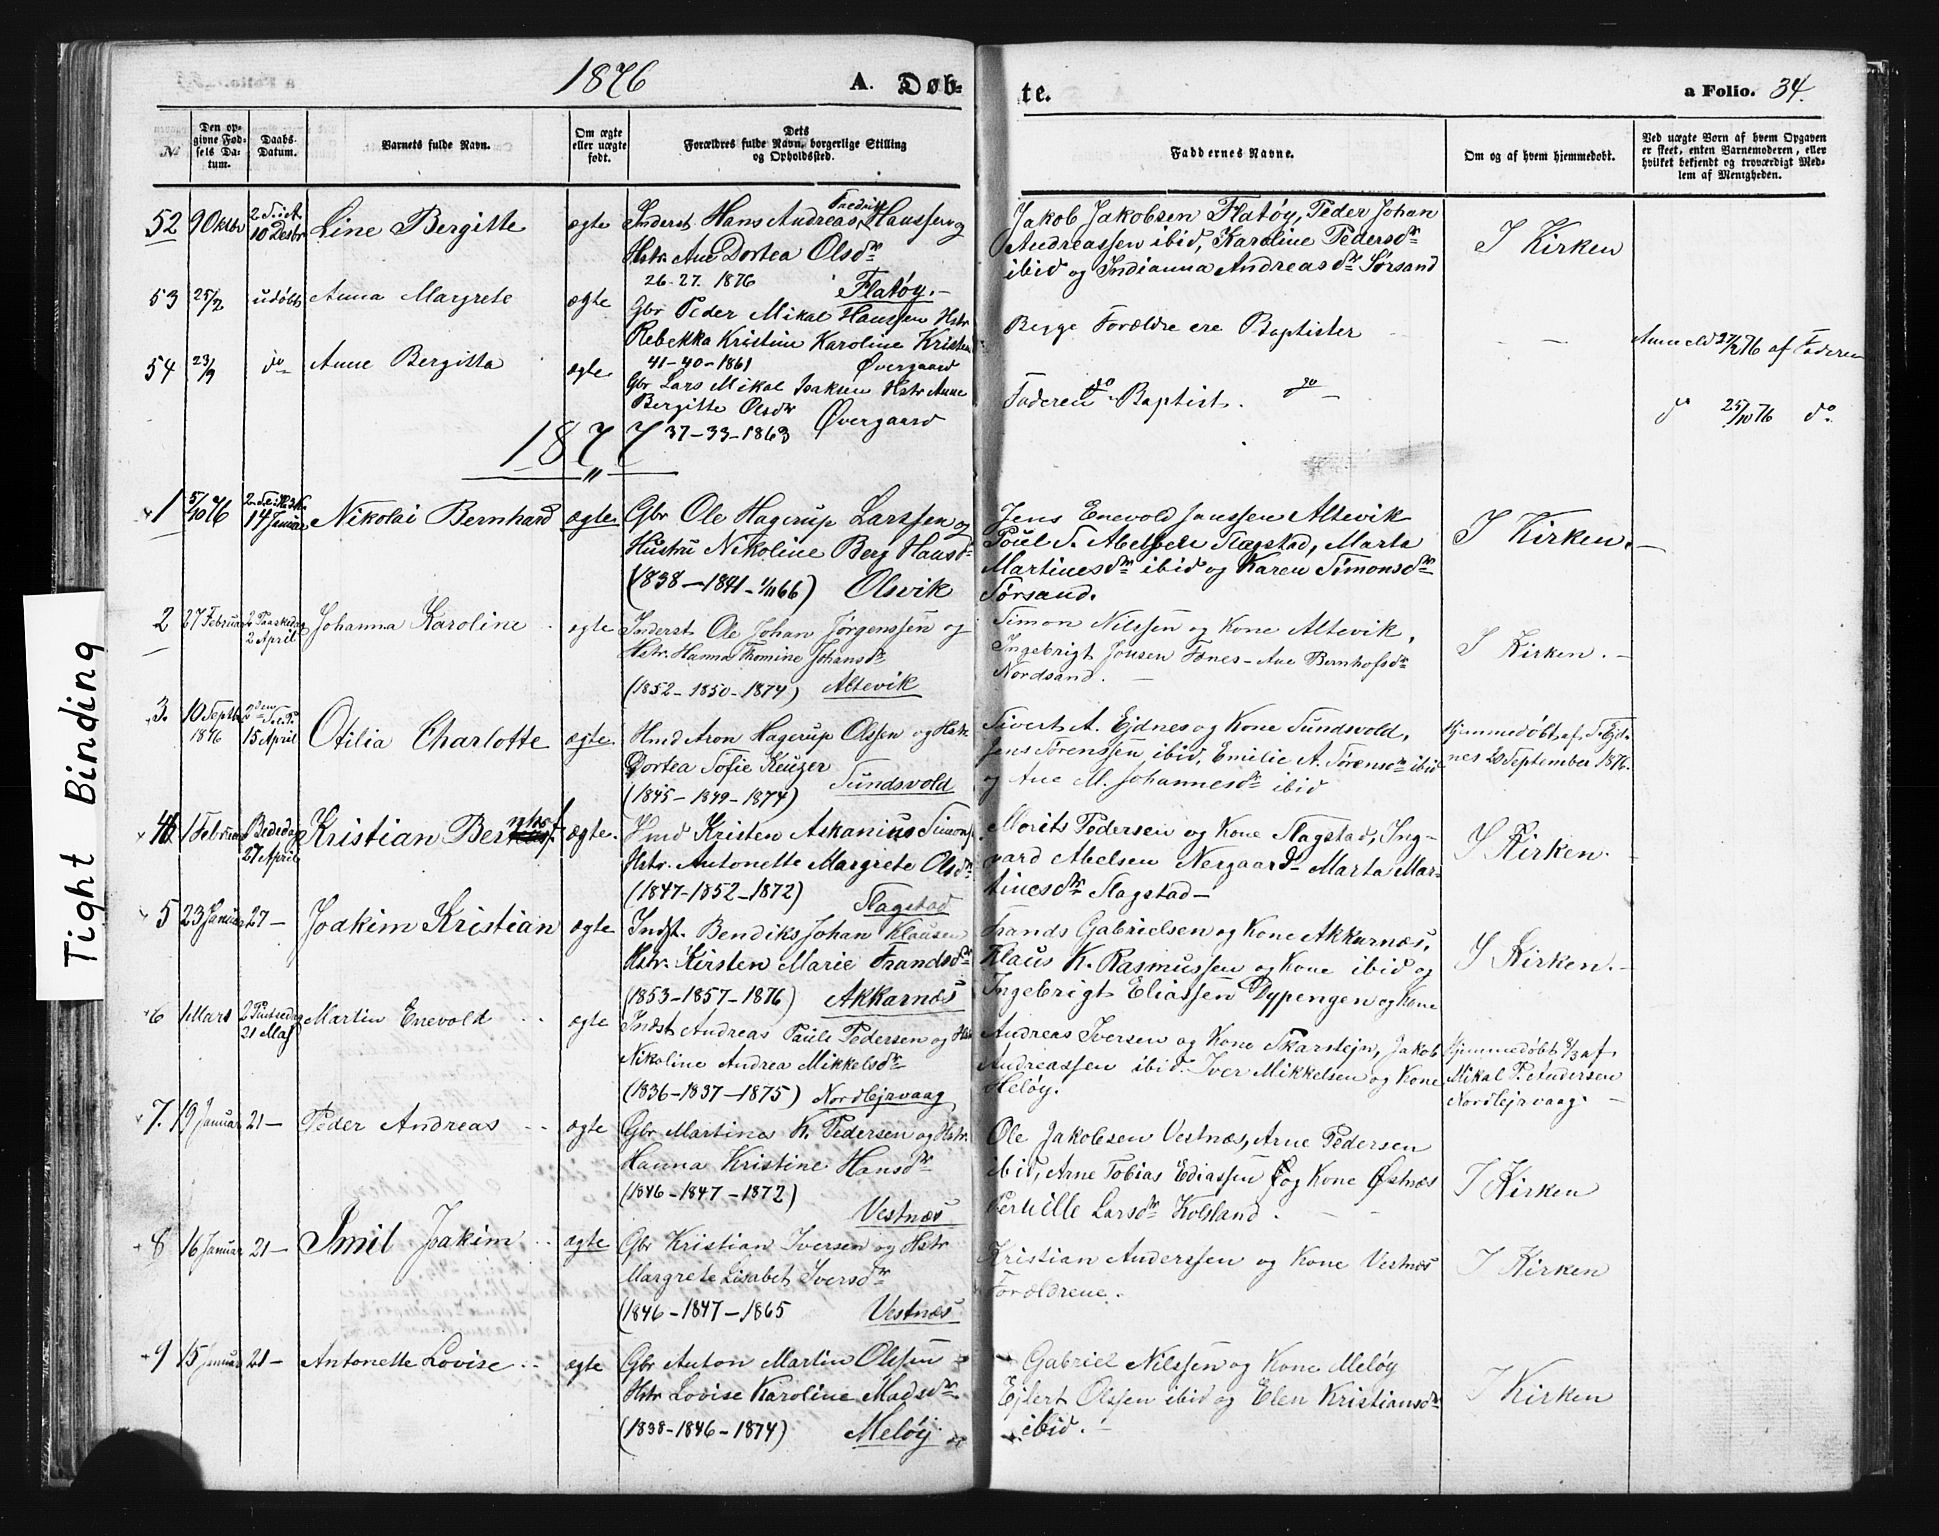 1876 A. Døb-
te. a Folio. 34.
№
Den op-
givne Fød-
sels Da-
tum.
Daabs-
Datum.
Barnets fulde Navn.
Om ægte
eller uægte
født.
Dets
Forældres fulde Navn, borgerlige Stilling
og Opholdssted.
Faddernes Navne.
Om og af hvem hjemmedøbt.
Ved uægte Børn af hvem Opgaven
er skeet, enten Barnemoderen, eller
hvilket bekjendt og troværdigt Med-
lem af Menigheden.
52 9 Oktbr 10 Desbr Line Bergitte ægte
Inderst Hans Andreas Fredrik Hanssen og
Hstr. Ane Dortea Olsdr
26-27. 1876 Flatøy.
Jakob Jakobsen Flatøy, Peder Johan
Andreassen ibid, Karoline Pedersdr
ibid og Indianna Andreasdr Sørsand
I Kirken
53 25/2 udøbt Anna Margrete ægte
Gbr Peder Mikal Hanssen Hstr
Rebekka Kristine Karoline Kristen
41-40-1861 Øvergaard
Begge Forældre ere Baptister
Anmeld 27/2 76 af Faderen
54 23/9 do Anne Bergitta ægte
Gbr Lars Mikal Isaksen Hstr Anne
Bergitte Olsdr
37-33-1863 Øvergaard
Faderen do Baptist. do
do 25/10 76 do.
1877
1 5/10 76 14 Januar Nikolai Bernhard ægte
Gbr Ole Hagerup Larssen og
Hustru Nikoline Berg Hansdr
(1838-1841-1/1166) Olsvik
Jens Enevold Janssen Altevik
Poul S. Abelsen Slagstad, Marta
Martinesdr ibid og Karen Simonsdr
Sørsand.
I Kirken.
2 27 Februar 2 Paaskedag
2 April Johanna Karoline ægte
Inderst Ole Johan Jørgenssen og
Hstr. Hanna Tomine Johansdr
(1852-1850-1874) Altevik
Simon Nilssen og Kone Altevik,
Ingebrigt Jonsen Fønes- Ane Bernhofsdr
Nordsand.
I Kirken.
3. 10 Septbr
1876 15 April Otilia Charlotte ægte
Hmd Aron Hagerup Olssen og Hstr
Dortea Sofie Keuzer
(1845-1849-1874) Sundsvold
Sivert A. Ejdnes og Kone Sundsvold,
Jens Sørenssen ibid, Emilie A. Sørensdr ibid
og Ane M. Johannesdr ibid
Hjemmedøbt af S. Ejd-
nes 20 September 1876.
4 1 Februar Bededag
27 April Kristian ægte
Hmd Kristen Askanius Simons.
Hstr. Antonette Margrete Olsdr
(1847-1852-1872) Slagstad
Morits Pedersen og Kone Slagstad, Ing-
vard Abelsen Nergaard- Marta Mar-
tinesdr Slagstad-
I Kirken.
5 23 Januar 27 - Joakim Kristian ægte
Indst. Bendiks Johan Klausen
Hstr. Kirsten Marie Frandsdr
(1853-1857-1876) Akkarnæs
Frands Gabrielsen og Kone Akkarnæs,
Klaus K. Rasmussen og Kone ibid og
Ingebrigt Eliassen Dypengen og Kone
I Kirken.
6 1 Mars 2 Pintsedag
21 Maj Martin Enevold ægte
Indst Andreas Pauli Pedersen og Hstr
Nikoline Andrea Mikkelsdr
(1836-1837-1875) Nordlejrvaag
Andreas Iversen og Kone Skarstejn, Jakob
Andreassen ibid. Iver Mikkelsen og Kone
Meløy.
Hjemmedøbt 8/3 af
Mikal P. Andersen
Nordlejrvaag.
7. 19 Januar 21 - Peder Andreas ægte
Gbr Martines K. Pedersen og Hstr.
Hanna Kristine Hansdr
(1846-1847-1872) Vestnæs
Ole Jakobsen Vestnæs, Arne Pedersen
ibid, Arne Tobias Ediassen og Kone Østnæs
Pernille Larsdr Kolsland.
I Kirken
8 16 Januar 21 - Emil Joakim ægte
Gbr Kristian Iversen og Hstr
Margrete Lisabet Iversdr
(1846-1847-1865 Vestnæs
Kristian Anderssen og Kone Vestnæs
Forældrene.
I Kirken
9 15 Januar 21 - Antonette Lovise ægte
Gbr Anton Martin Olssen
Hstr Lovise Karoline Madsdr.
(1838-1846-1874) Meløy
Gabriel Nilssen og Kone Meløy
Ejlert Olssen ibid og Elen Kristiansdr
ibid.
I Kirken
Tight Binding